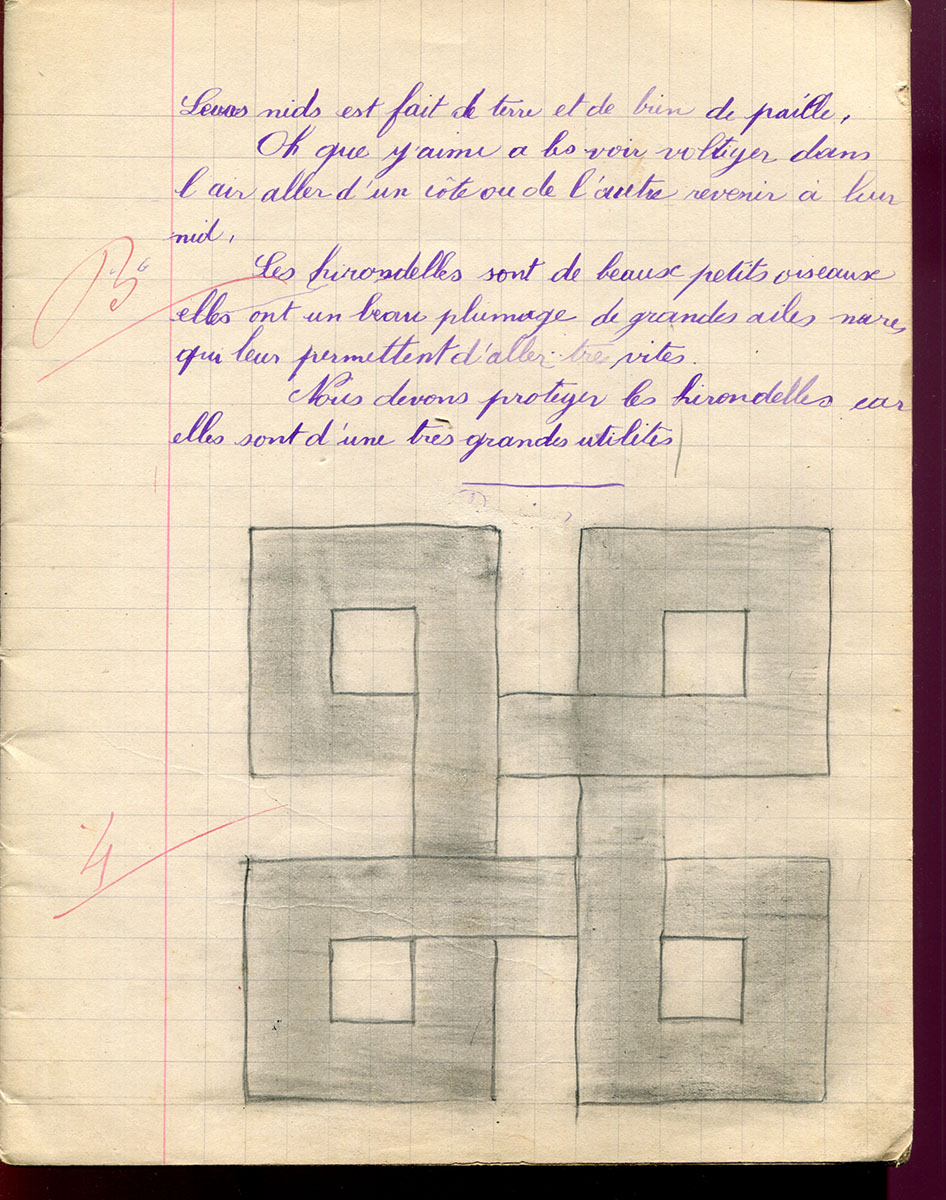 Leurs nids est fait de terre et de brin de paille,
Oh que j'aime a les voir voltiger dans
l'air aller d'un côte ou de l'autre revenir à leur
nid,
Les hirondelles sont de beaux petits oiseaux
elles ont un beau plumage de grandes ailes nares
qui leur permettent d'aller tre vites.
Nous devons protéger les hirondelles car
elles sont d'une tres grandes utilités
B
4